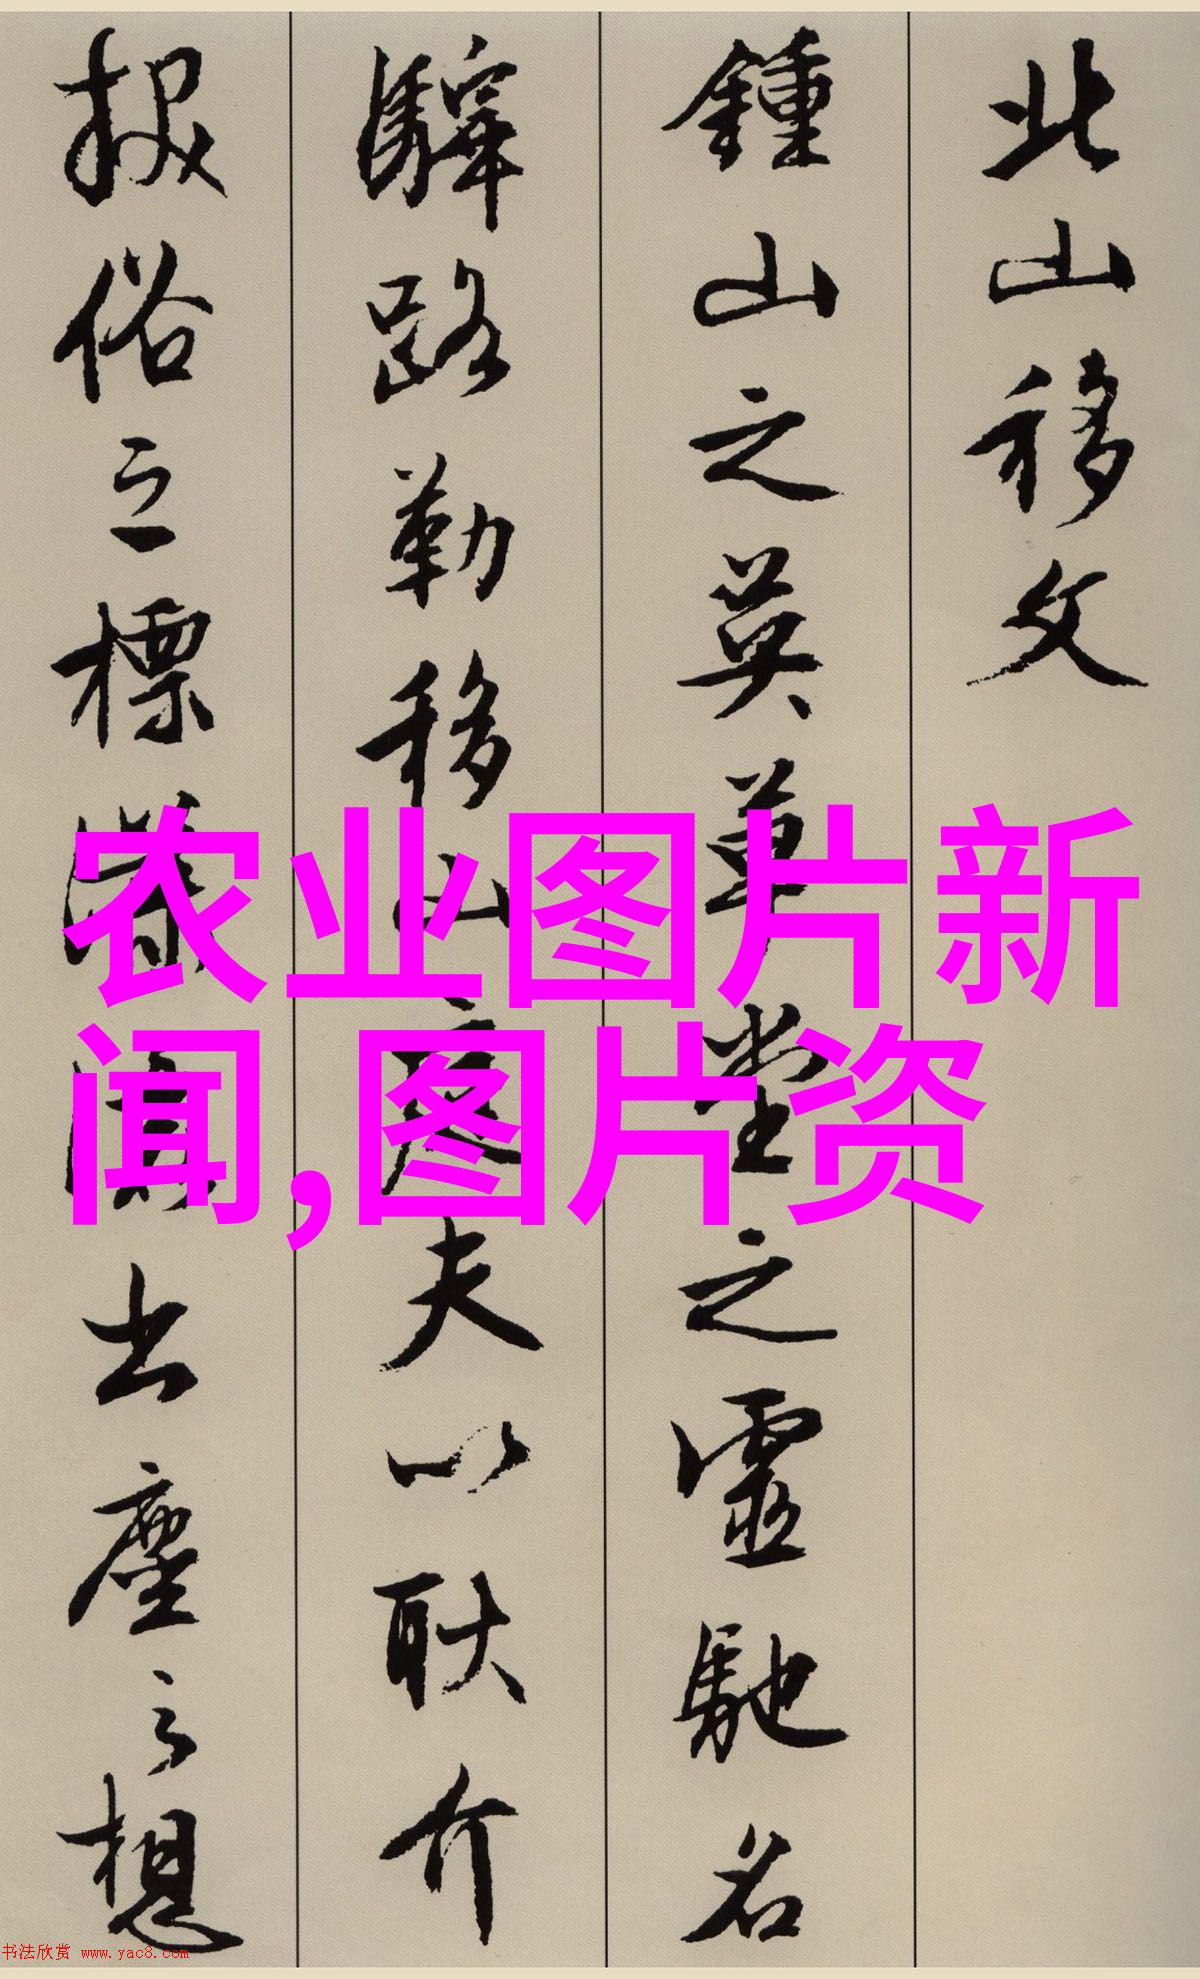 北山移文
鍾山之英草堂之靈馳名
驛路勒移山庭夫以耿介
拔俗之標瀟灑出塵之想
农业图片新
闻,图片资
书法欣赏 www.yac8.com